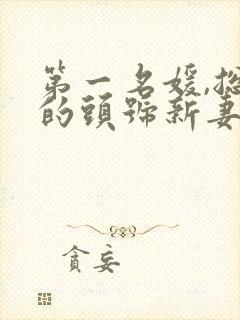 第一名媛,總
的頭號新妻
貪妄